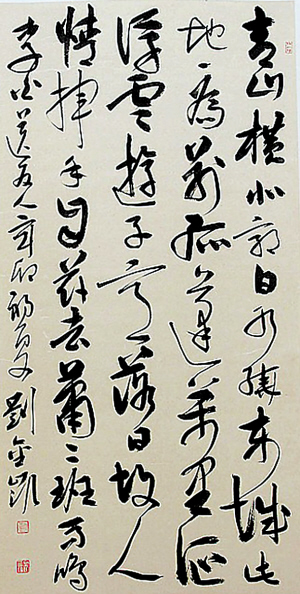 青山橫北郭白水繞東城此
地一為別孤蓬萬里征
浮雲遊子意落日故人
情揮手自茲去蕭〻班馬鳴
李白送友人辛卯初夏劉金凱